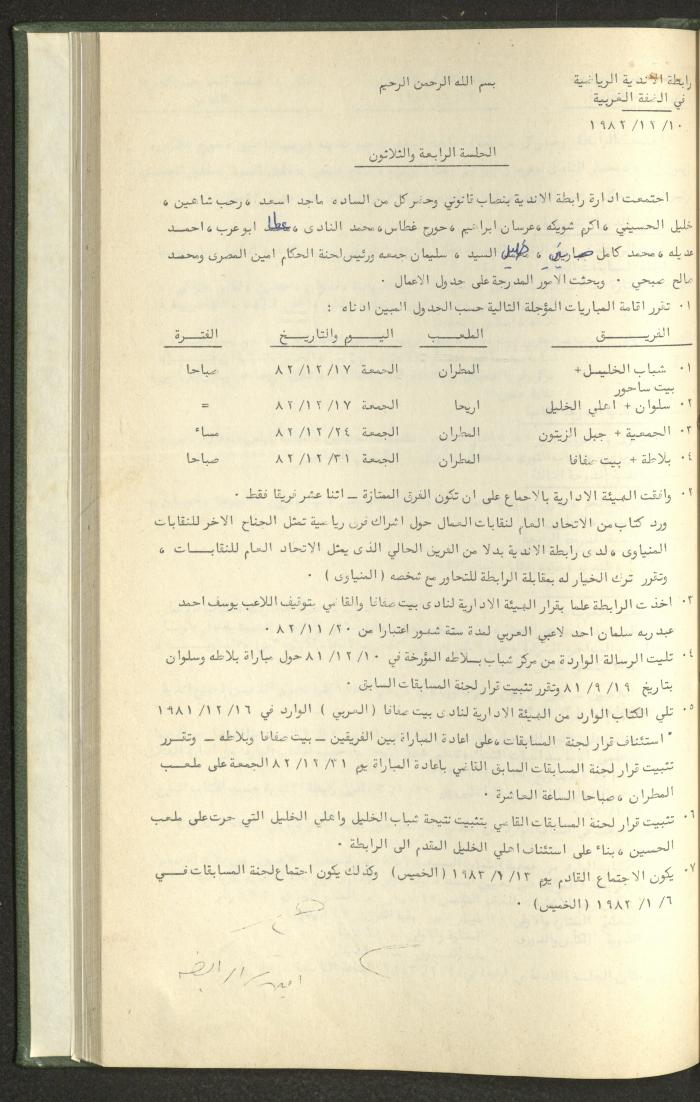 رابطة الاندية الرياضية
بسم الله الرحمن الرحيم
في الضفة الغربية
١٩٨٢/١٢/١٠
الجلسة الرابعة والثلاثون
اجتمعت ادارة رابطة الاندية بنصاب قانوني وحضر كل من الساده ماجد اسعد ، رحب شاهين ،
خليل الحسيني ، اكرم شويكه ،عرسان ابراهيم ،جورج غطاس ،محمد النادى ،عطا ابو عرب ، احمد
عديله ،محمد كامل ، خليل السيد ، سليمان جمعه ورئيس لجنة الحكام امين المصرى ومحمد
صالح صبحي ٠ وبحثت الامور المدرجة على جدول الاعمال ٠
١٠ تقرر اقامة المباريات المؤجلة التالية حسب الجدول المبين ادناه :
الفريــــق الملعـــب اليــوم والتاريــخ الفتــرة
١٠ شباب الخليــل + المطران الجمعة ٨٢/١٢/١٧ صباحا
بيت ساحور
٢٠ سلوان + اهلي الخليل اريحا الجمعة ٨٢/١٢/١٧ =
٣٠ الجمعية + جبل الزيتون المطران الجمعة ٨٢/١٢/٢٤ مساء
٤٠ بلاطة + بيت صفافا المطران الجمعة ٨٢/١٢/٣١ صباحا
٢٠ وافقت الهيئة الادارية بالاجماع على ان تكون الفرق الممتازة ــ اثنا عشر فريقا فقط ٠
ورد كتاب من الاتحاد العام لنقابات العمال حول اشراك فرق رياضية تمثل الجناح الاخر للنقابات
المنياوى ،لدى رابطة الاندية بدلا من الفريق الحالي الذى يمثل الاتحاد العام للنقابـــات ،
وتقرر ترك الخيار له بمقابلة الرابطة للتحاور مع شخصه (المنياوى ) ٠
٣٠ اخذت الرابطة علما بقرار الهيئة الادارية لنادى بيت صفافا والقاضي بتوقيف اللاعب يوسف احمد
عبد ربه سلمان احد لاعبي العربي لمدة ستة شهور اعتبارا من ٨٢/١١/٢٠ ٠
٤٠ تليت الرسالة الواردة من مركز شباب بــلاطه المؤرخة في ٨١/١٢/١٠ حول مباراة بلاطه وسلوان
بتاريخ ٨١/٩/١٩ وتقرر تثبيت قرار لجنة المسابقات السابق ٠
٥٠ تلي الكتاب الوارد من الهيئة الادارية لنادى بيت صفافا (العربي ) الوارد في ١٩٨١/١٢/١٦
" استئناف قرار لجنة المسابقات ،على اعادة المباراة بين الفريقين ــ بيت صفافا وبلاطه ــ وتقــرر
تثبيت قرار لجنة المسابقات السابق القاضي باعادة المباراة يوم ٨٢/١٢/٣١ الجمعة على ملعــب
المطران ،صباحا الساعة العاشرة ٠
٦٠ تثبيت قرار لجنة المسابقات القاضي بتثبيت نتيجة شباب الخليل واهلي الخليل التي جرت على ملعب
الحسين ،بناء على استئناف اهلي الخليل المقدم الى الرابطة ٠
٧٠ يكون الاجتماع القادم يوم ١٩٨٣/١/١٣ (الخميس) وكذلك يكون اجتماع لجنة المسابقات فــي
١٩٨٣/١/٦ (الخميس) ٠
امين سر الرابطة